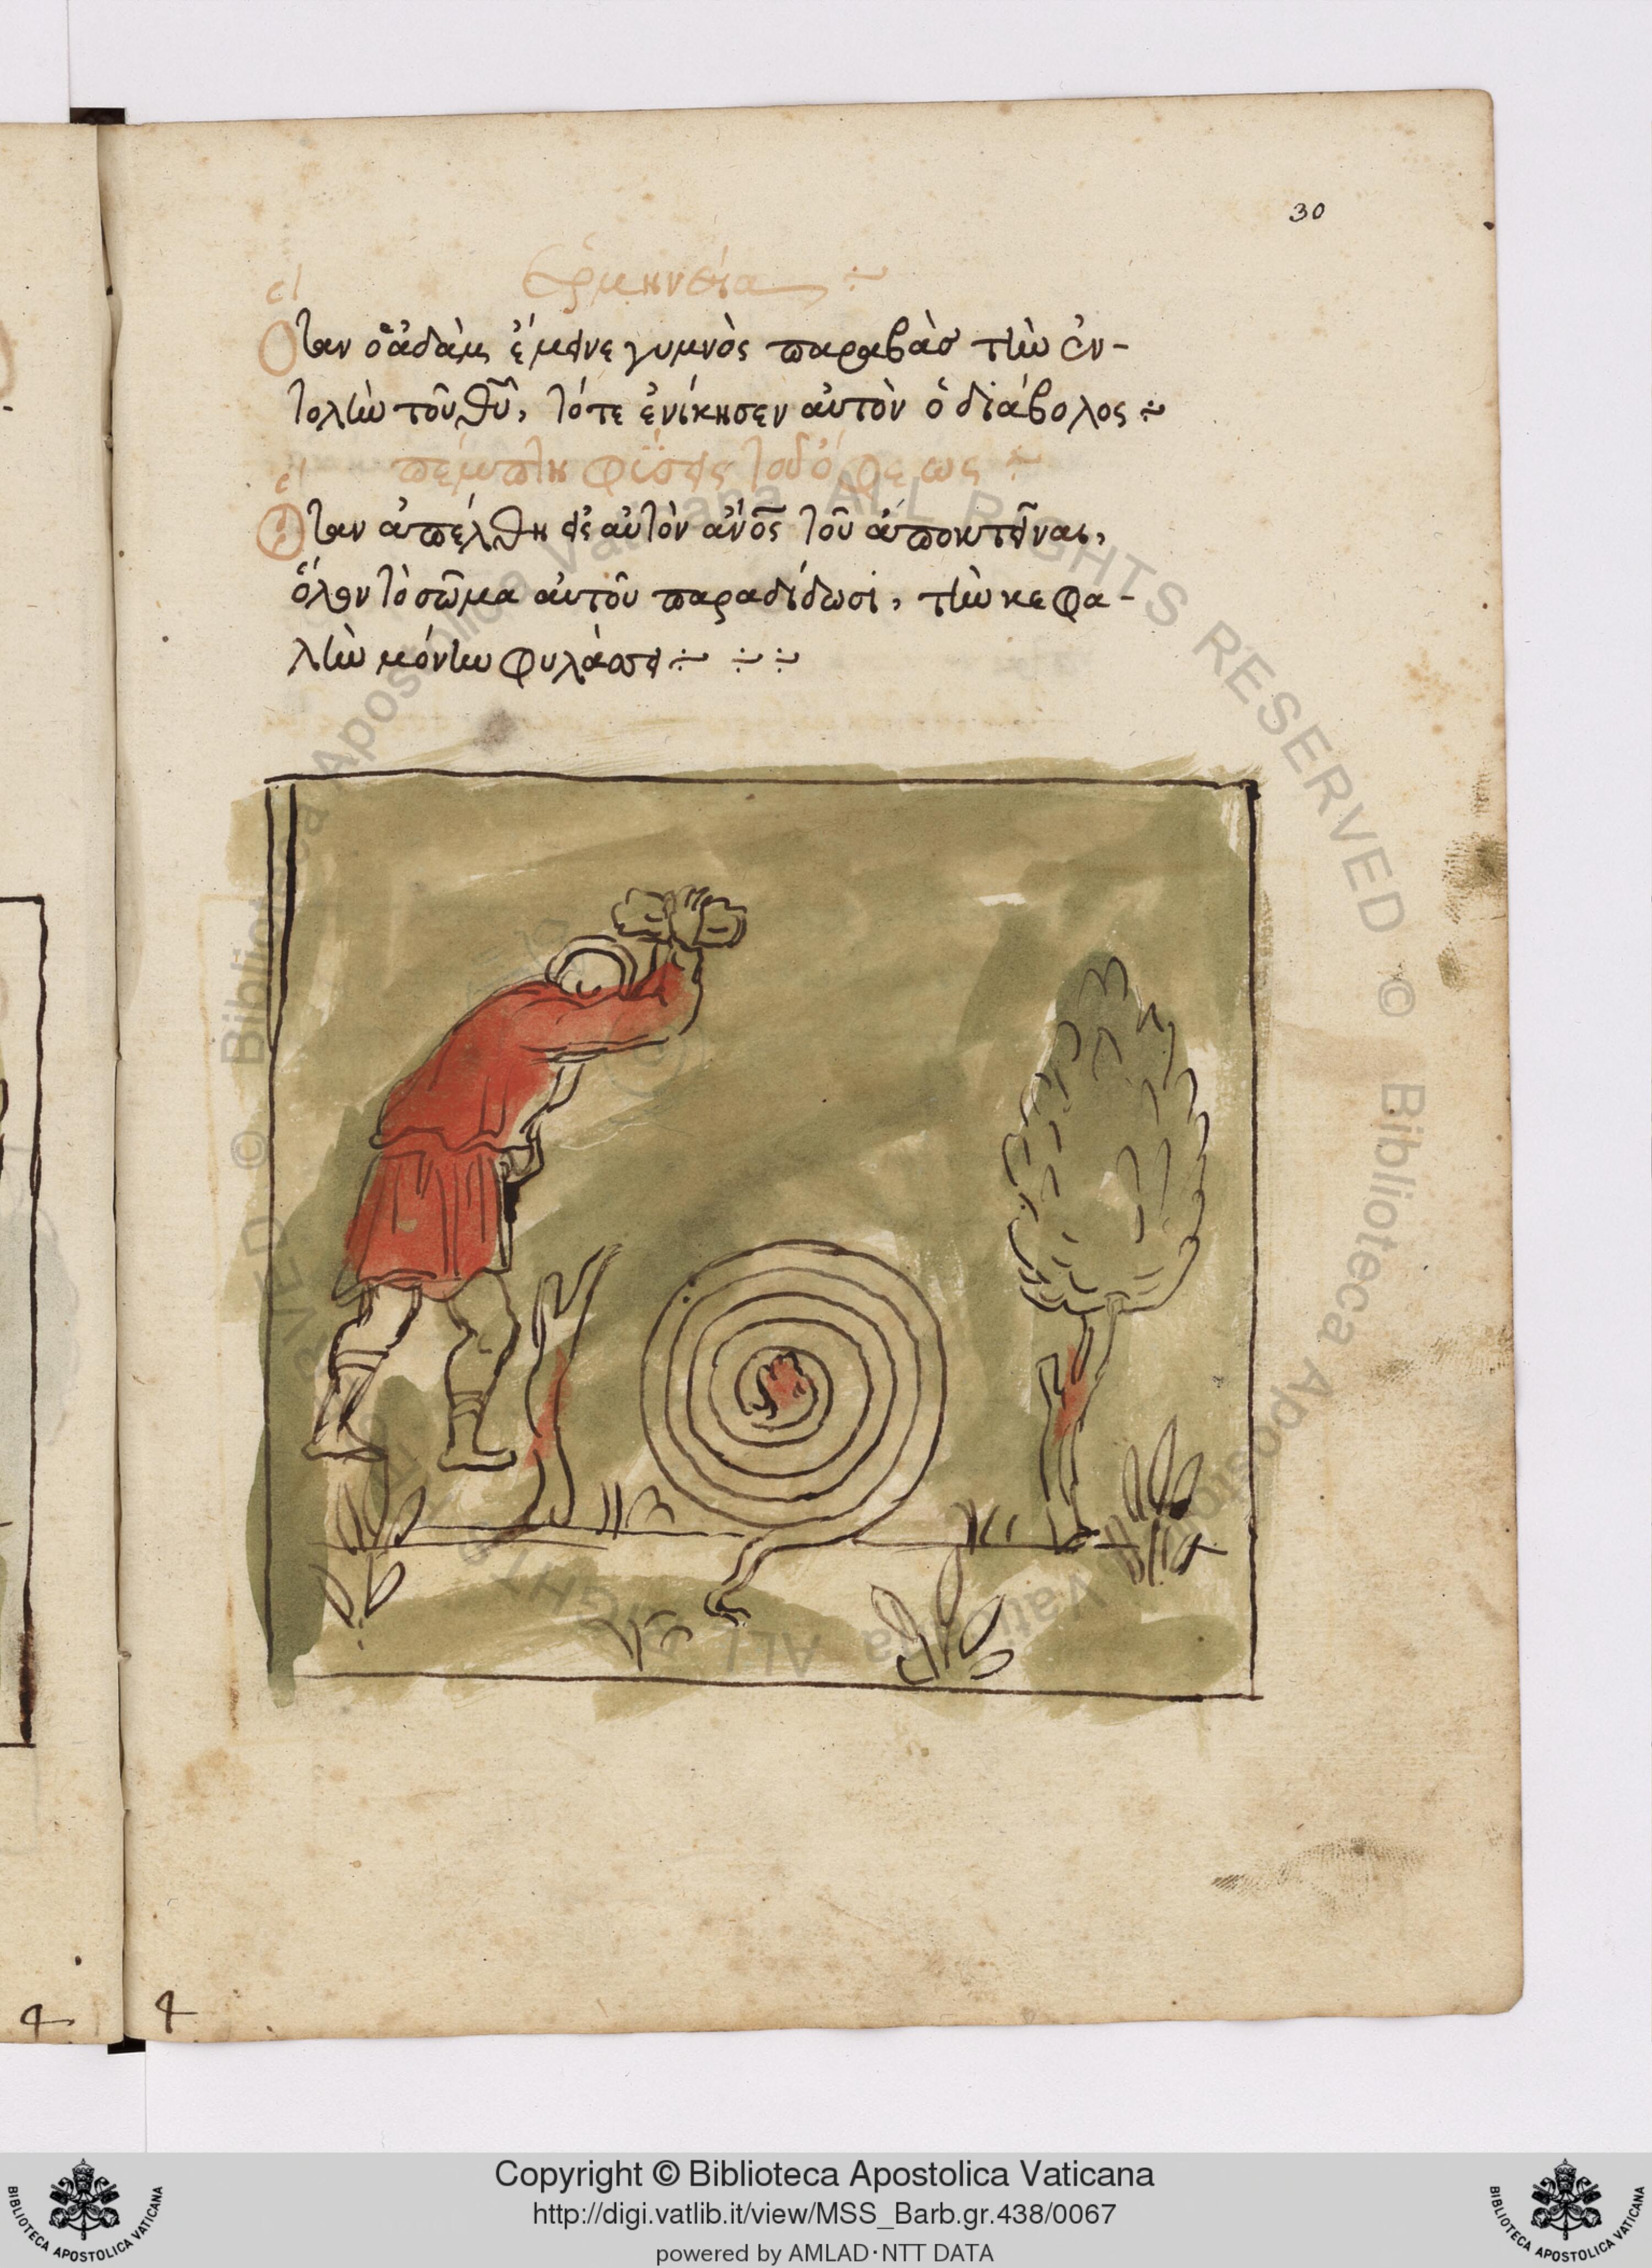 30
Ἑρμηνεία
Ὅταν ὁ ἀδὰμ ἔμεινε γυμνὸς παραβὰσ τὴν ἐν-
τολὴν τοῦ θῦ, τότε ἐνίκησεν αὐτὸν ὁ διάβολος
πέμπτη φύσις τοῦ ὄφεως
Ὅταν ἀπέλθη εἰς αὐτὸν ἀνος τοῦ ἀποκτεῖναι,
ὅλον τὸ σῶμα αὐτοῦ παραδίδωσι, τὴν κεφα-
λὴν μόνην φυλάσσει
4 4
© Biblioteca Apostolica Vaticana ALL RIGHTS RESERVED © Biblioteca Apostolica Vaticana ALL RIGHTS RESERVED
Copyright © Biblioteca Apostolica Vaticana
http://digi.vatlib.it/view/MSS_Barb.gr.438/0067
powered by AMLAD·NTT DATA
BIBLIOTECA APOSTOLICA VATICANA
BIBLIOTECA APOSTOLICA VATICANA